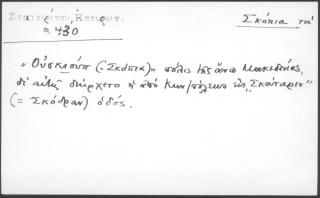 Σταγειρίτου, Ἠπειρωτ. Σκόπια τά
σ. 430
"Οὐσκιούπ (: Σκόπια)" πόλις τῆς ἄνω Μακεδονίας,
δι' αὐτῆς διήρχετο ἡ ἀπὸ Κων/πόλεως εἰς "Σκούταριν"
(= Σκόδραν) ὁδός.